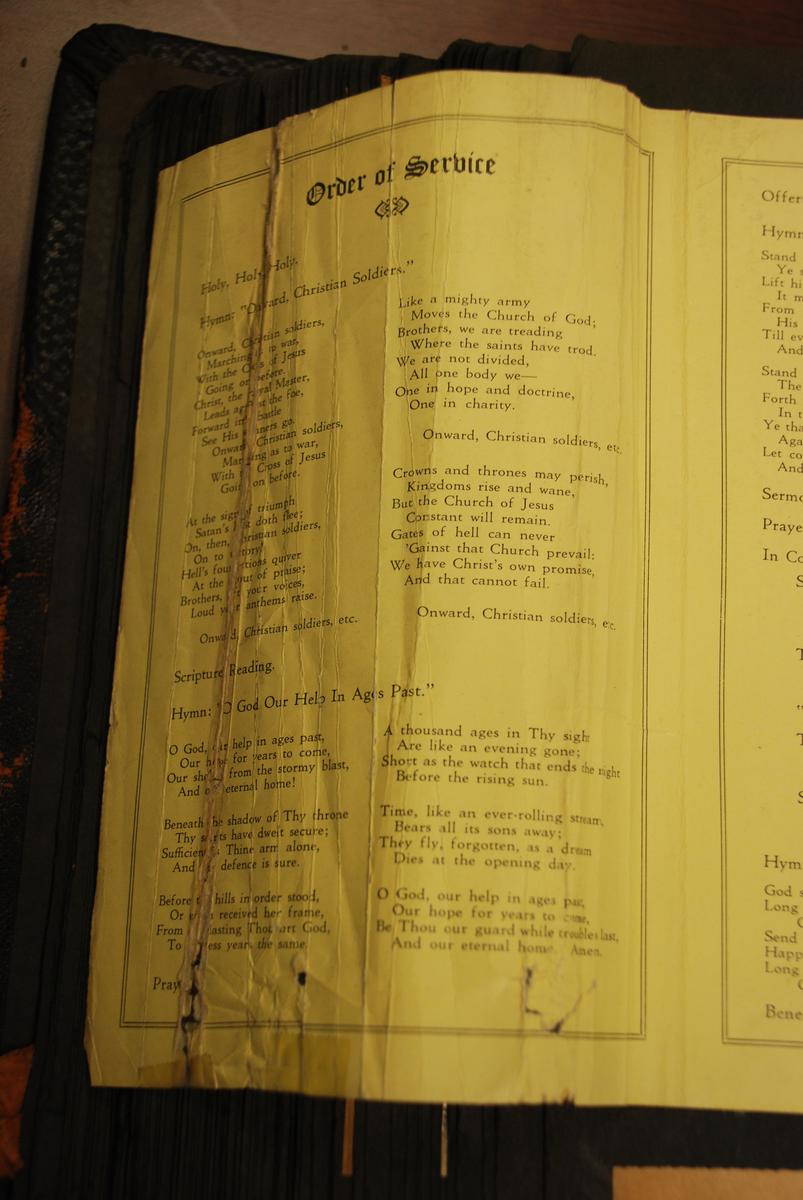 Order of Service
Holy, Holy, Holy.
Hymn: "Onward, Christian Soldiers."
Onward, Christian soldiers,
Marching as to war,
With the Cross of Jesus
Going on before.
Christ, the Royal Master,
Leads against the foe,
Forward into battle
See His banners go.
Onward Christian soldiers,
Marching as to war,
With the Cross of Jesus
Going on before.
At the sign of triumph
Satan's host doth flee;
On, then, Christian soldiers,
On to victory!
Hell's foundations quiver
At the shout of praise;
Brothers, lift your voices,
Loud your anthems raise.
Onward, Christian soldiers, etc.
Like a mighty army
Moves the Church of God;
Brothers, we are treading
Where the saints have trod.
We are not divided,
All one body we—
One in hope and doctrine,
One in charity.
Onward, Christian soldiers, etc.
Crowns and thrones may perish,
Kingdoms rise and wane,
But the Church of Jesus
Constant will remain.
Gates of hell can never
'Gainst that Church prevail;
We have Christ's own promise,
And that cannot fail.
Onward, Christian soldiers, etc.
Scripture Reading.
Hymn: "O God Our Help In Ages Past."
O God, our help in ages past,
Our hope for years to come,
Our shelter from the stormy blast,
And our eternal home!
Beneath the shadow of Thy throne
Thy saints have dwelt secure;
Sufficient is Thine arm alone,
And our defence is sure.
Before the hills in order stood,
Or earth received her frame,
From everlasting Thou art God,
To endless years the same.
A thousand ages in Thy sight
Are like an evening gone;
Short as the watch that ends the night
Before the rising sun.
Time, like an ever-rolling stream,
Bears all its sons away;
They fly, forgotten, as a dream
Dies at the opening day.
O God, our help in ages past,
Our hope for years to come,
Be Thou our guard while troubles last,
And our eternal home. Amen.
Pray
Offer
Hymn
Stand
Ye
Lift hi
It m
From
His
Till ev
And
Stand
The
Forth
In t
Ye tha
Aga
Let co
And
Sermo
Praye
In Co
S
T
"
T
S
Hym
God s
Long
Send
Happ
Long
Bene